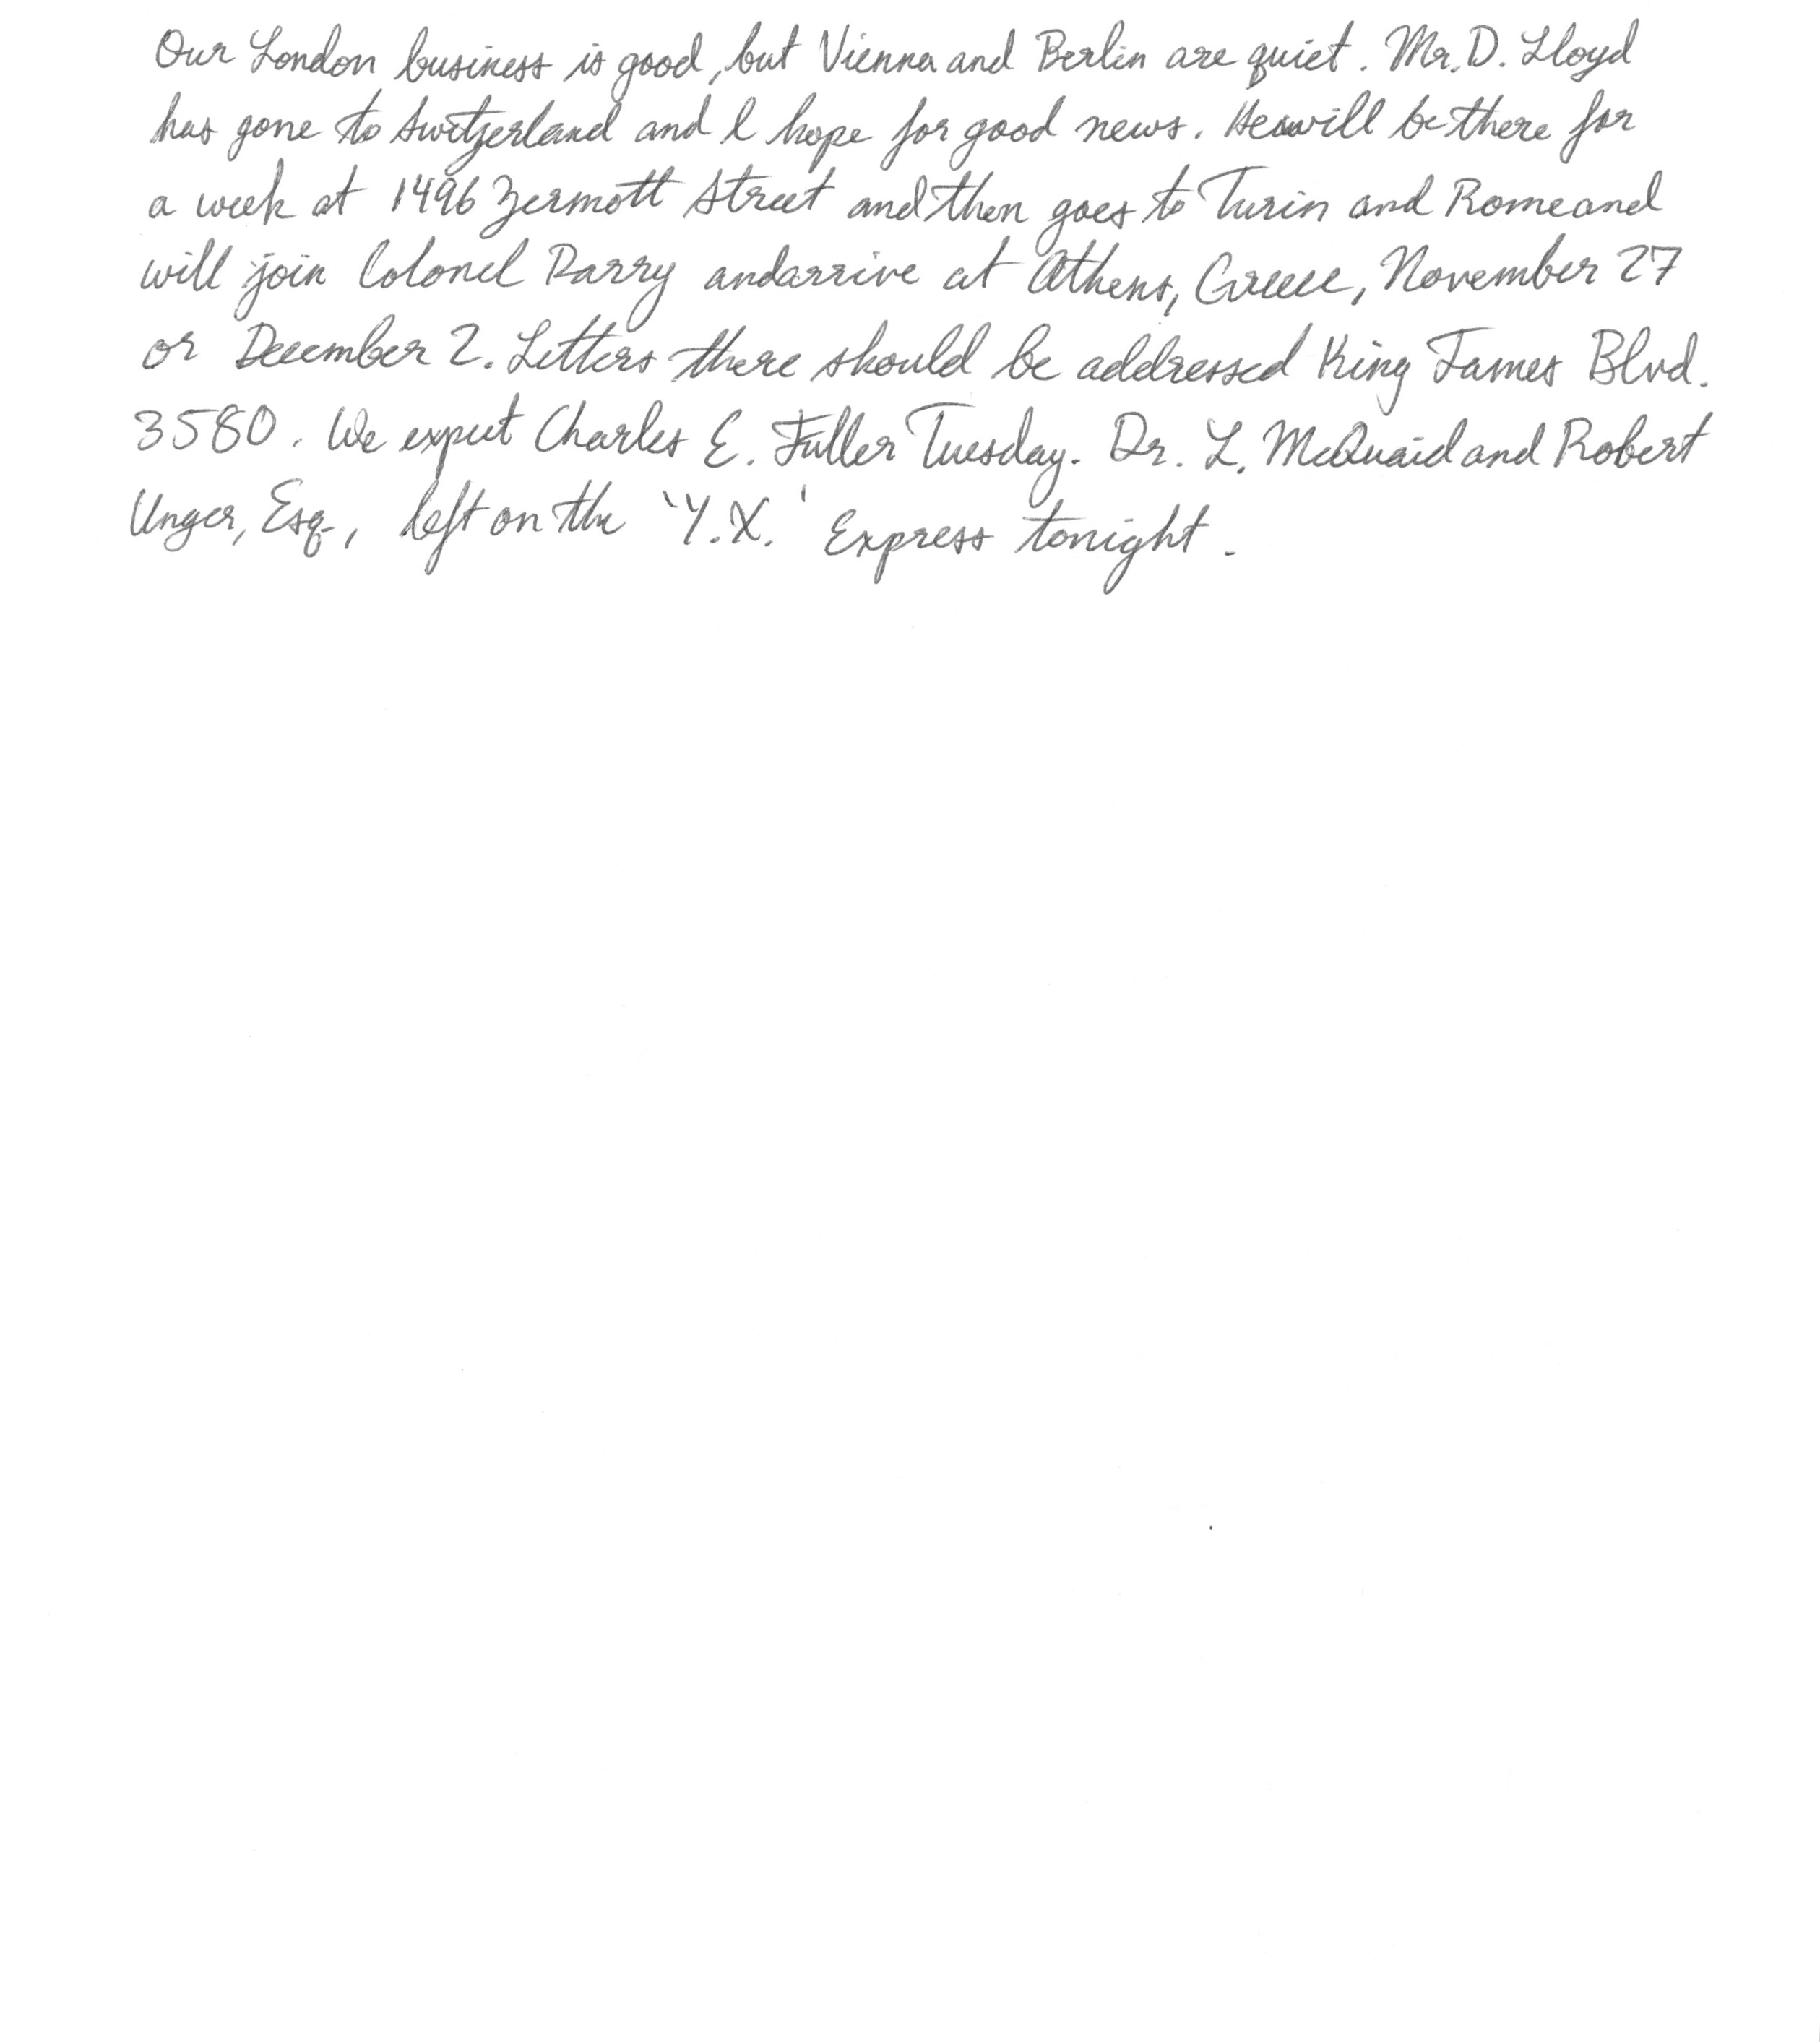 Our London business is good, but Vienna and Berlin are quiet. Mr. D. Lloyd
has gone to Switzerland and I hope for good news. He will be there for
a week at 1496 Zermott Street and then goes to Turin and Rome and
will join Colonel Parry and arrive at Athens, Greece, November 27
or December 2. Letters there should be addressed King James Blvd.
3580. We expect Charles E. Fuller Tuesday. Dr. L. McQuaid and Robert
Unger, Esq., left on the 'Y.X.' Express tonight.